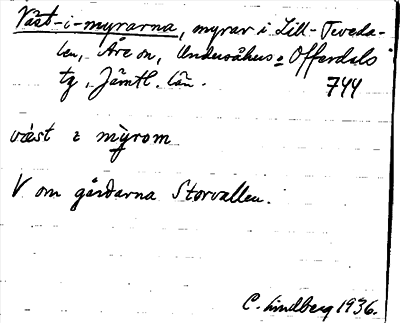 Väst-i-myrarna, myrar i Lill-Tveda-
len, Åre sn, Undersåkers o Offerdals
tg, Jämtl. län. 744
væst i my̆rom
V om gårdarna Storvallen.
C. Lindberg 1936.